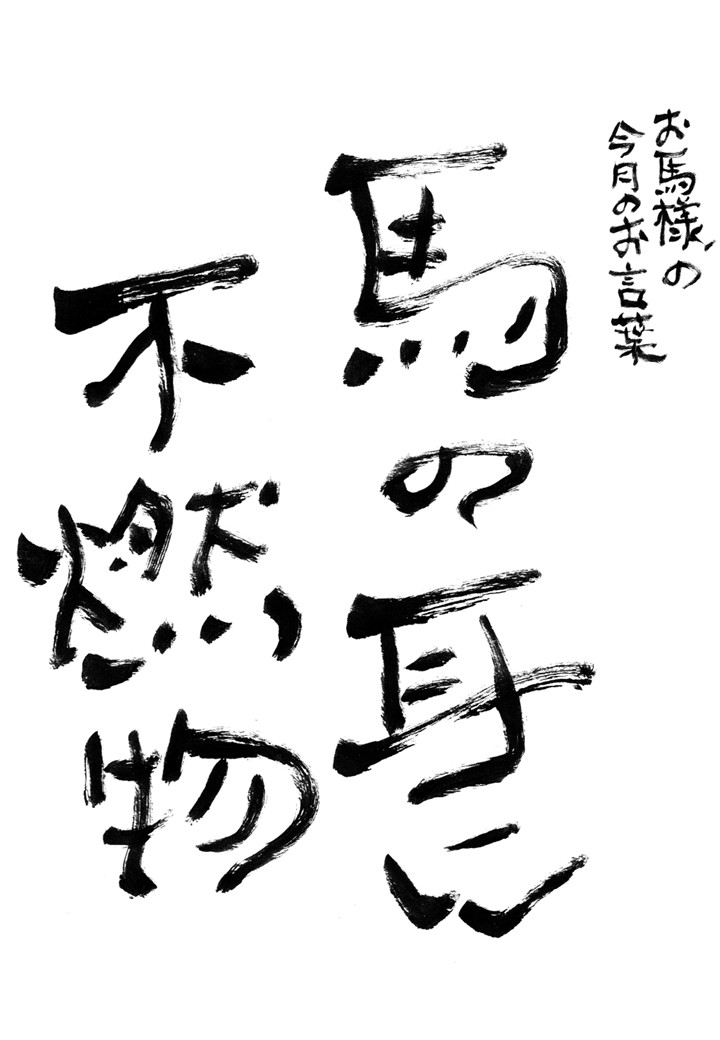 お馬様の
今月のお言葉
馬の耳に
不燃物